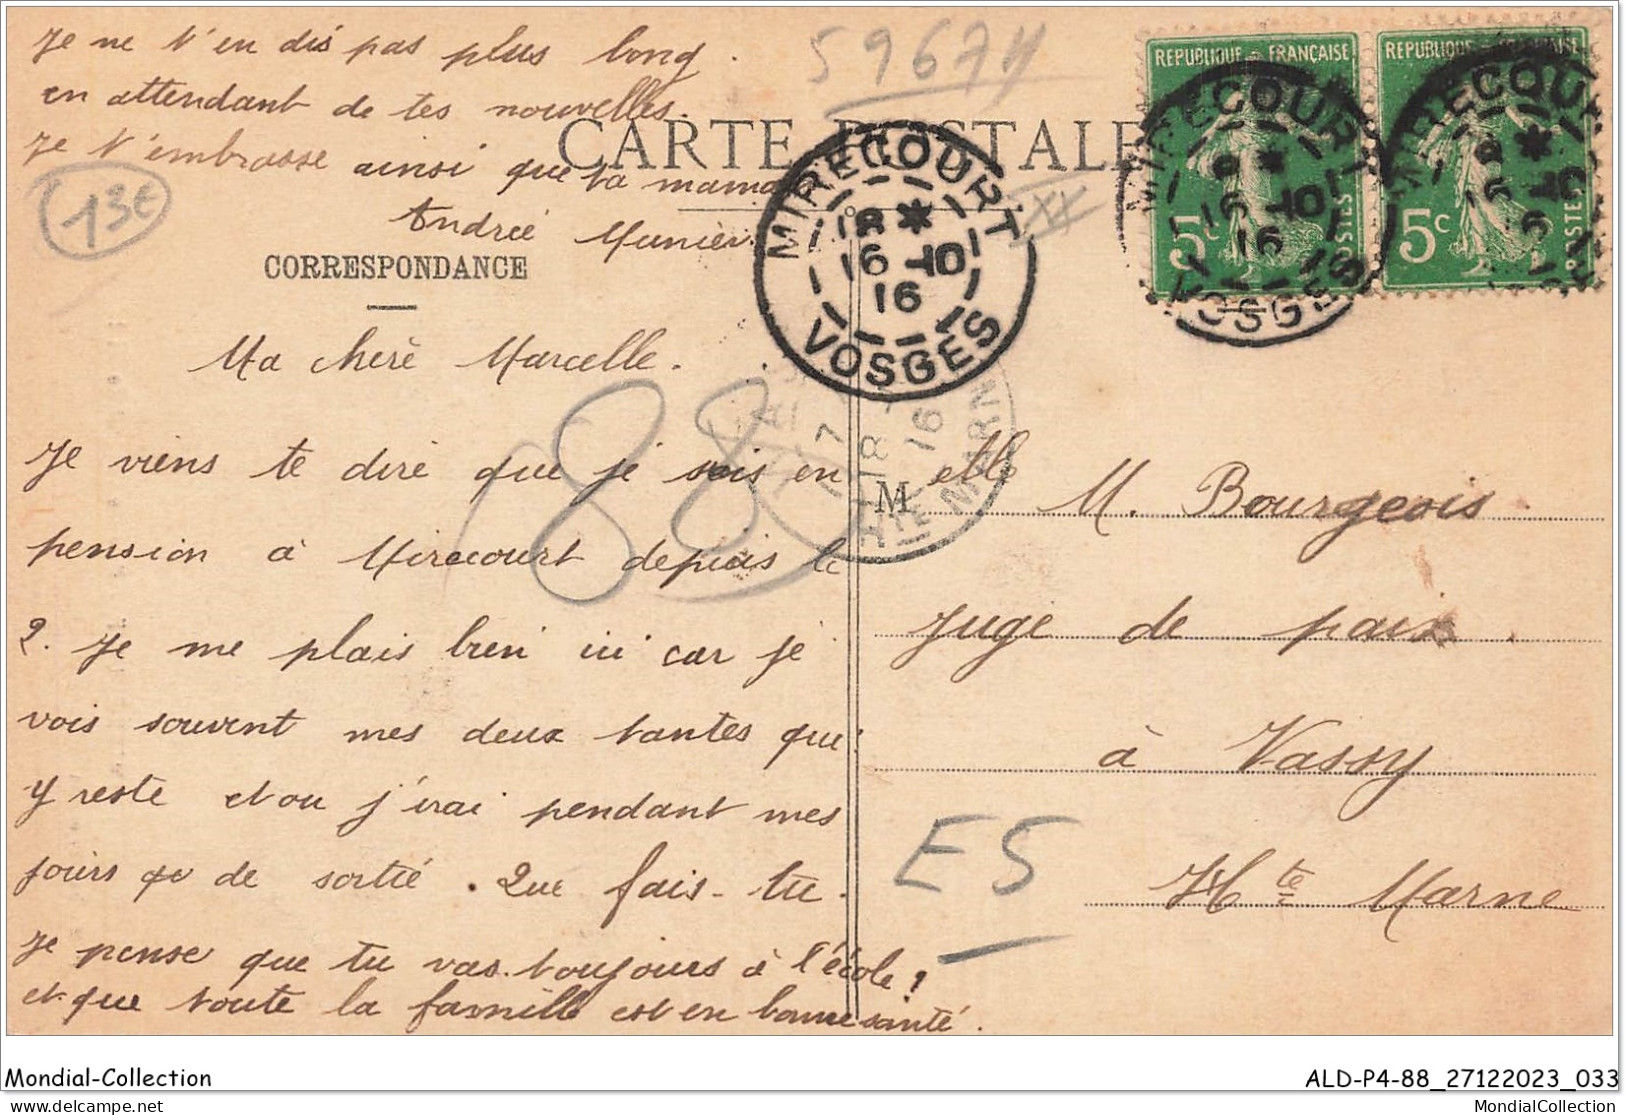 Je ne t'en dis pas plus long.
en attendant de tes nouvelles.
Je t'embrasse ainsi que ta maman
Andrée Munier
59674
13€
XX
CARTE POSTALE
CORRESPONDANCE
REPUBLIQUE FRANÇAISE
5c
POSTES
REPUBLIQUE FRANÇAISE
5c
POSTES
MIRECOURT
18 *
16 -10
16
VOSGES
MIRECOURT
16 -10
16
VOSGES
MIRECOURT
7
18
16
Hte MARNE
Ma cherè Marcelle.
Je viens te dire que je suis en
pension à Mirecourt depuis le
2. Je me plais bien ici car je
vois souvent mes deux tantes qui
y reste et ou j'irai pendant mes
jours de sortie. Que fais-tu.
Je pense que tu vas toujours à l'école?
et que toute la famille est en bonne santé.
88
Melle M. Bourgeois
Juge de paix.
à Vassy
Hte Marne
ES
Mondial-Collection
ALD-P4-88_27122023_033
delcampe.net
MondialCollection